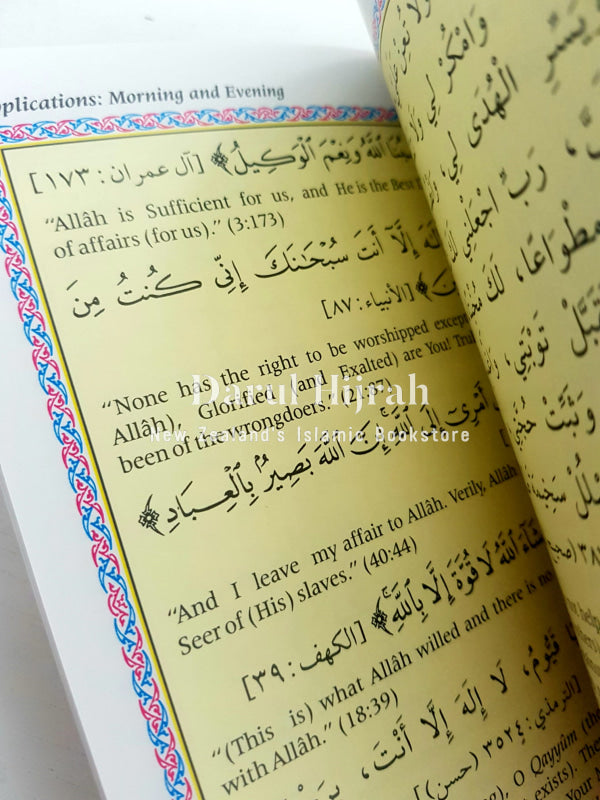 Supplications: Morning and Evening
ٱللَّهُ وَنِعْمَ ٱلْوَكِيلُ﴾ [آل عمران: ١٧٣]
“Allâh is Sufficient for us, and He is the Best
of affairs (for us).” (3:173)
إِلَّآ أَنتَ سُبْحَـٰنَكَ إِنِّى كُنتُ مِنَ
[الأنبياء: ٨٧]
“None has the right to be worshipped except
Allâh), Glorified (and Exalted) are You!
been of the wrongdoers.” (21:87)
أَمْرِىٓ إِلَى ٱللَّهِ إِنَّ ٱللَّهَ بَصِيرٌۢ بِٱلْعِبَادِ﴾
“And I leave my affair to Allâh. Verily, Allâh
Seer of (His) slaves.” (40:44)
شَآءَ ٱللَّهُ لَا قُوَّةَ إِلَّا بِٱللَّهِ﴾ [الكهف: ٣٩]
“(This is) what Allâh willed and there is no
with Allâh.” (18:39)
قَيُّومُ، لَا إِلَهَ إِلَّا أَنْتَ،
الترمذي: ٣٥٢٤ (حسن)]
O Qayyûm (the
exists). The
Your
وَامْكُرْ لِي وَلَا
وَيَسِّرِ الْهُدَى لِي،
رَبِّ اجْعَلْنِي
مِطْوَاعًا، لَكَ
تَقَبَّلْ تَوْبَتِي،
وَثَبِّتْ
Darul Hijrah
New Zealand's Islamic Bookstore